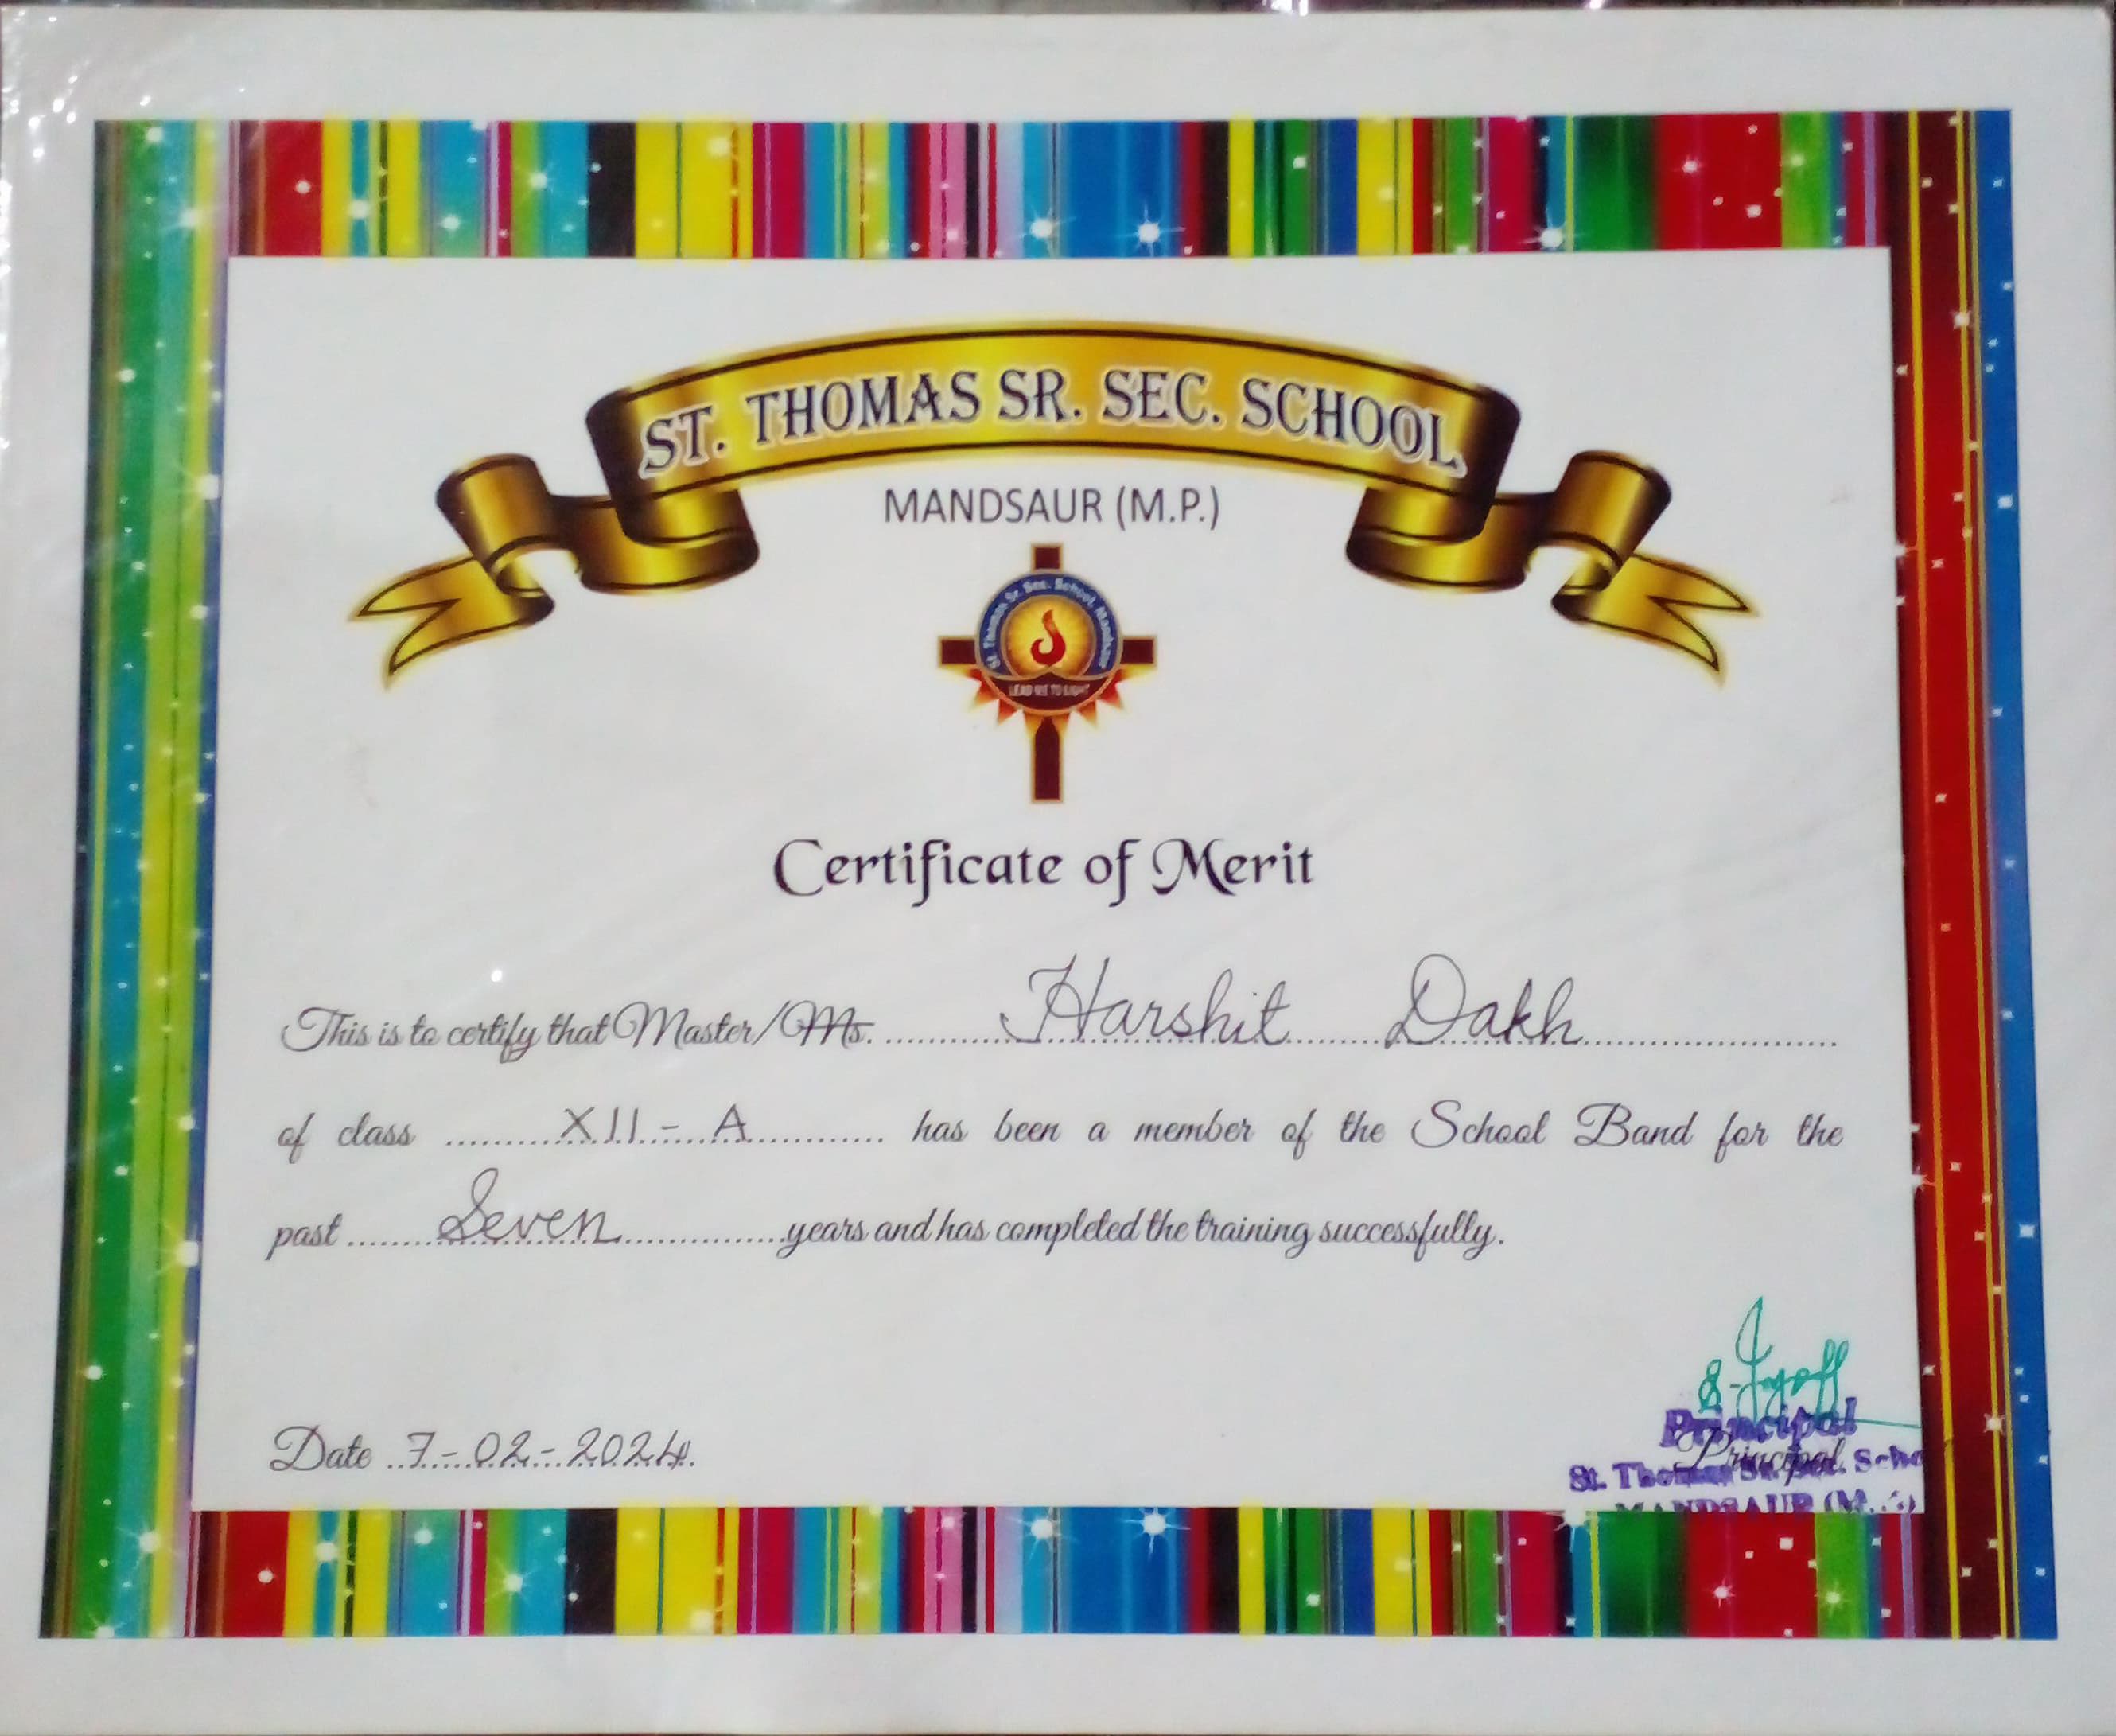 ST. THOMAS SR. SEC. SCHOOL
MANDSAUR (M.P.)
St. Thomas Sr. Sec. School, Mandsaur
LEAD WE TO LIGHT
Certificate of Merit
This is to certify that Master/Ms. Harshit Dakh
of class XII - A has been a member of the School Band for the
past Seven years and has completed the training successfully.
Date 7-02-2024.
Principal
Principal
St. Thomas Sr. Sec. Scho
MANDSAUR (M.